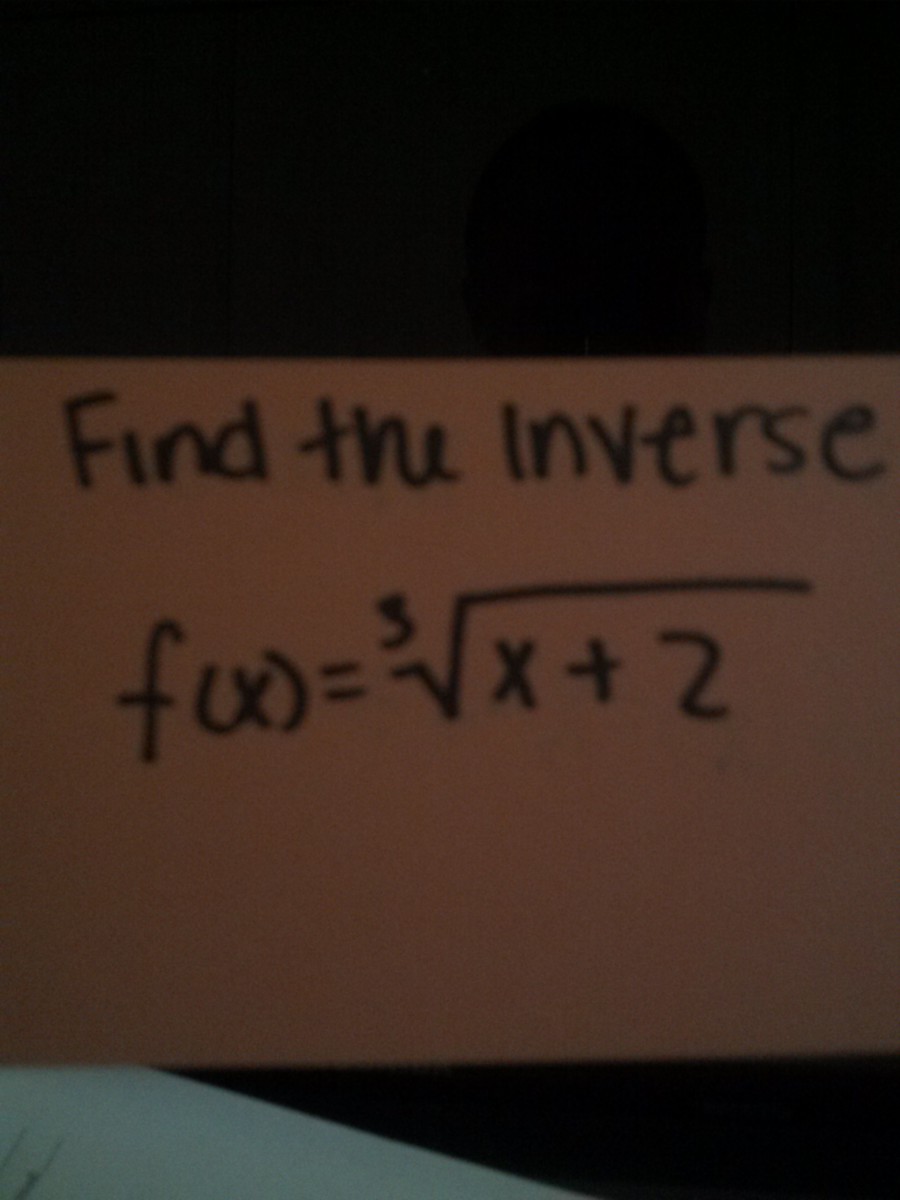 Find the Inverse
f(x)=³√x+2